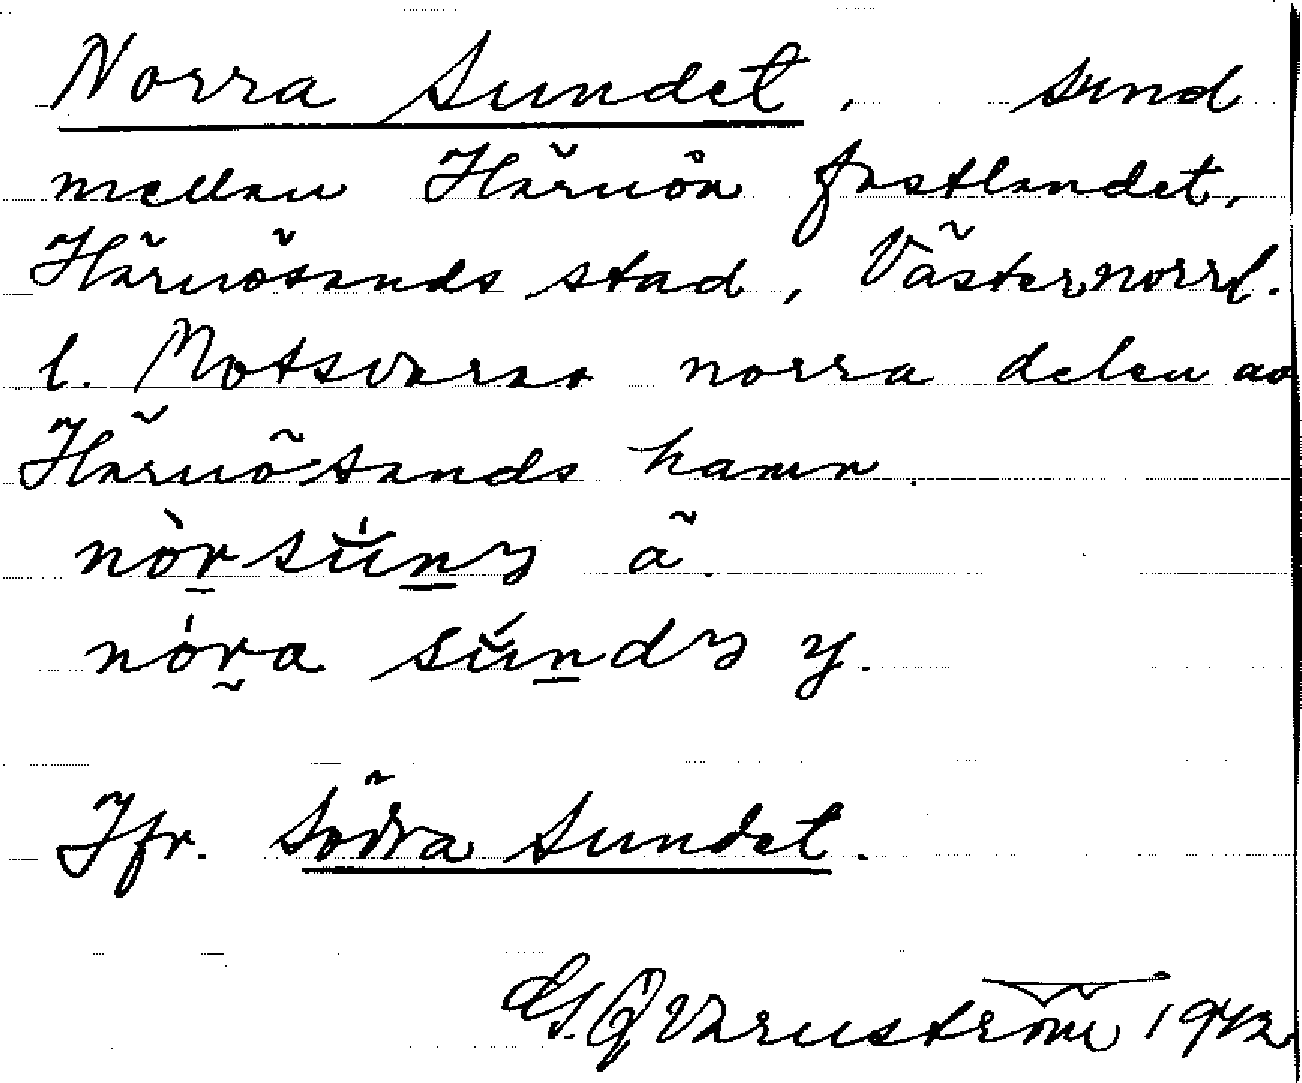 Norra Sundet, sund
mellan Härnön fastlandet,
Härnösands stad, Västernorrl.
l. Motsvarar norra delen av
Härnösands hamn.
ä.
y.
Jfr. Södra Sundet.
G. Qvarnström 1942